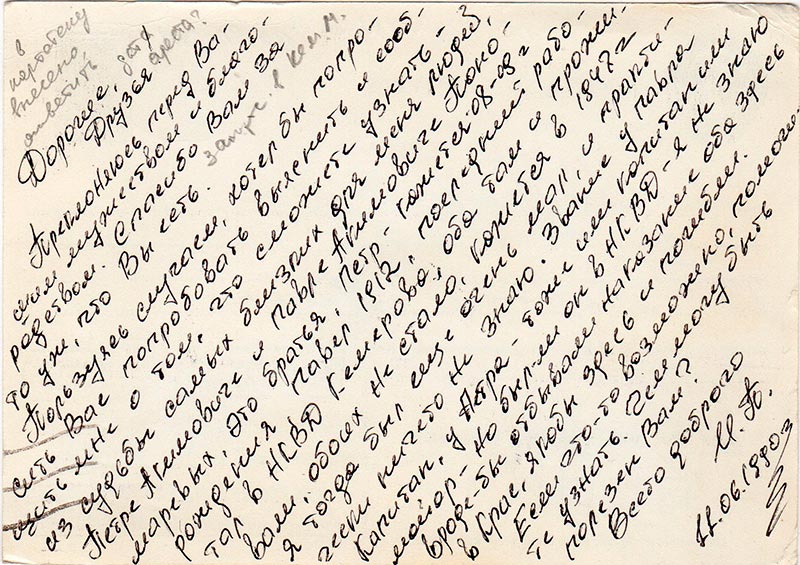 в
картотеку
внесено
ответить
дата
ареста?
запрос в Кем.
Дорогие,
Друзья
Преклоняюсь перед Ва-
шим мужеством и благо-
родством. Спасибо Вам за
то уж, что Вы есть.
Пользуясь случаем, хотел бы попро-
сить Вас попробовать выяснить и сооб-
щить мне о том, что сможете узнать-
из судьбы самых близких для меня людей,
Петре Акимовиче и Павле Акимовиче Поно-
маревых. Это братья, Петр- кажется 08-09 г
рождения Павел 1912, последний рабо-
тал в НКВД Кемерово, оба там и прожи-
вали, обоих не стало, кажется в 1947 г
я тогда был еще очень мал и практи-
чески ничего не знаю. Звание у Павла
Капитан, у Петра- тоже или капитан или
майор- но был-ли он в НКВД-я не знаю
вроде-бы отбывали наказание оба здесь
в Крае, якобы здесь и погибли.
Если что-то возможно, помоги-
те узнать. Чем могу быть
полезен Вам?
Всего доброго
11.06.1990г